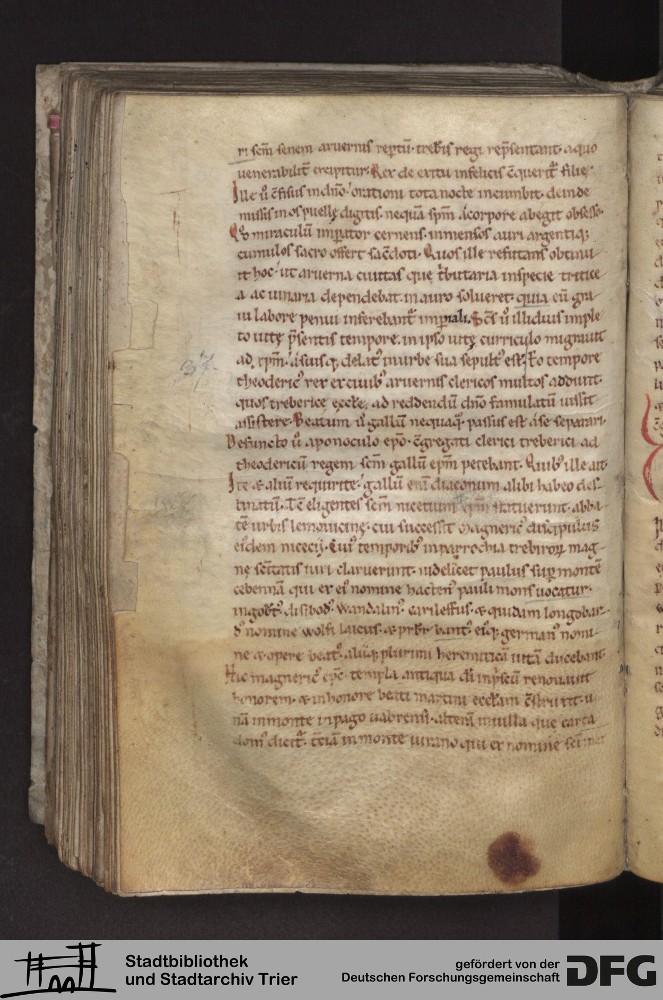 ri scm̄ senem aruernis reptū· treb̄is regi rep̄sentant· a quo
uenerabilit̄ eripitur· Rex de exitu infelicis c̄queritᷣ filie·
Ille ū c̄fisus in dn̄o· orationi tota nocte incumbit· deinde
missis in os puelle digitis nequā sp̄m a corpore abegit obsesso·
Qͦ miraculū imꝑator cernens· inmensos auri argentiqꝫ
cumulos sacro offert sac̄doti· Quos ille refutans obtinu
it hoc· ut aruerna ciuitas que t̄butaria in specie tritice
a ac uinaria dependebat· in auro solueret· quia cū gra
ui labore penui inferebantᷣ imꝑiali· Sc̄s ū illidius imple
to uitę p̄sentis tempore· in ipso uitę curriculo migrauit
ad xp̄m· a suis qꝫ delatꝰ in urbe sua sepultꝰ est· Eo tempore
theodericꝰ rex ex ciuibꝰ aruernis clericos multos adduxit·
quos treberice eccłe· ad reddendū dn̄o famulatū iussit
assistere· Beatum ū gallū nequaqͣ· passus est a se separari·
Defuncto ū aponoculo ep̄o· c̄gregati clerici treberici ad
theodericū regem· scm̄ gallū ep̄m petebant· Quibꝰ ille ait·
Ite & aliū requirite· gallū enī diaconum alibi habeo des
tinatū· Tc̄ eligentes scm̄ nicetium ep̄m statuerunt· abba
tē urbis lemouicinę· cui successit magnericꝰ discipulus
eiꝰdem nicecii· Cuiꝰ temporibꝰ in parrochia trebirorꝫ mag-
nę sc̄itatis uiri claruerunt· uidelicet paulus suꝑ montē
cebennā qui ex eiꝰ nomine hactenꝰ pauli mons uocatur·
ingobtꝰ· disibodꝰ· wandalinꝰ· carileffus· & quidam longobar
dꝰ nomine wolfi laicus· & pr̄br̄ bantꝰ eiꝰqꝫ germanꝰ nomi-
ne & opere beatꝰ· aliiqꝫ plurimi heremiticā uitā ducebant·
Hic magnericꝰ ep̄c· templa antiqua di īpsecū renouauit
honorem· & in honore beati martini eccłam c̄struxit· u
nā in monte in pago uabrensi· alterā in uilla que carta
domꝰ dicitᷣ· t̄ciā in monte uiuano qui ex nomine sc̄i mar
37
Stadtbibliothek
und Stadtarchiv Trier
gefördert von der
Deutschen Forschungsgemeinschaft
DFG